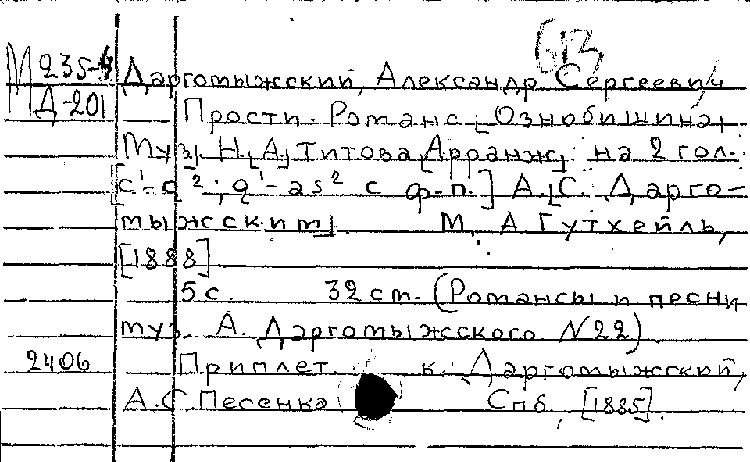 613
М 235-4 Даргомыжский, Александр Сергеевич
Д-201 Прости. Романс [Ознобишина,
Муз.] Н.А. Титова [Арранж.] на 2 гол.
[c¹-g²; g¹-as² с ф-п.] А.[С. Дарго-
мыжским] М. А. Гутхейль,
[1888]
5 с. 32 ст. (Романсы и песни
муз. А. Даргомыжского. N22)
2406 Приплет. к: Даргомыжский,
А.С. Песенка Спб. [1885].